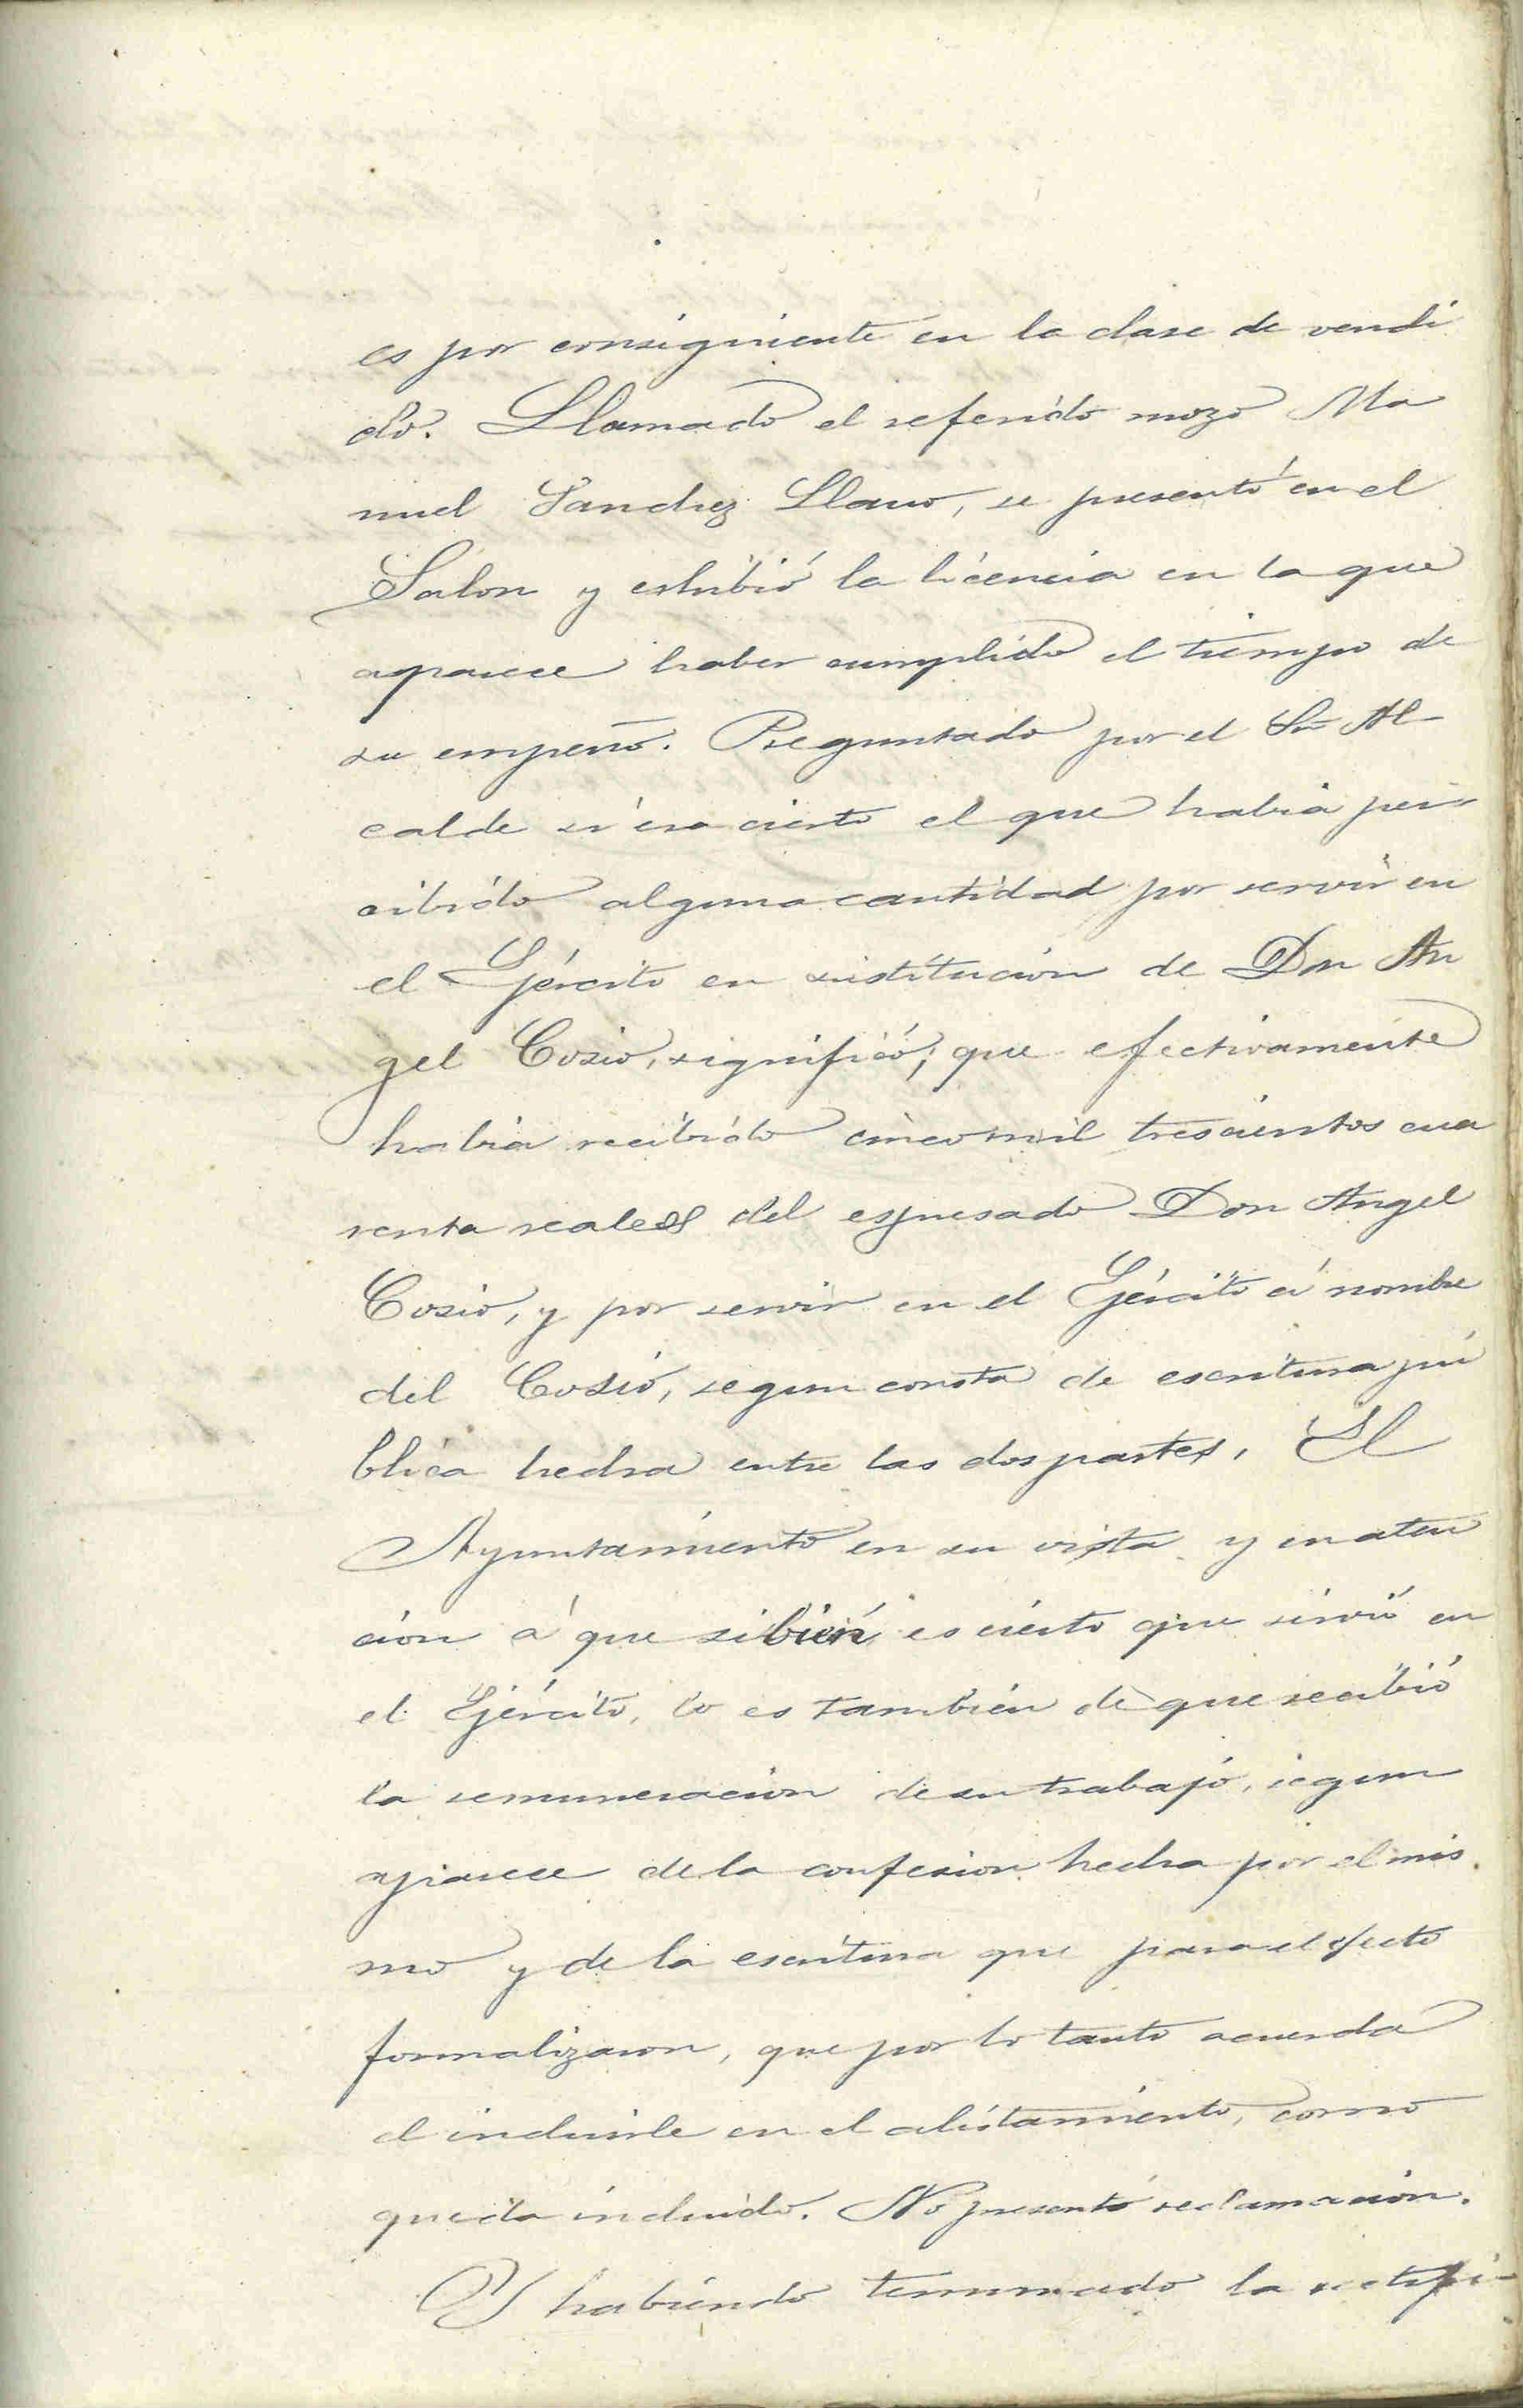 es por consiguiente en la clase de vendi
do. Llamado el referido mozo Ma
nuel Sanchez Llano, se presentó en el
Salon y eshibió la licencia en la que
aparece haber cumplido el tiempo de
su empeño. Preguntado por el Sr Al-
calde si era cierto el que habia per-
cibido alguna cantidad por servir en
el Ejército en sustitucion de Don An
gel Cosio, significó; que efectivamente
habia recibido cinco mil trescientos cua
renta reales del espresado Don Angel
Cosio, y por servir en el Ejército á nombre
del Cosio, segun consta de escritura pú
blica hecha entre las dos partes. El
Ayuntamiento en su vista y en aten
cion á que si bien es cierto que sirvió en
el Ejército, lo es tambien de que recibió
la remuneracion de su trabajo, segun
aparece de la confesion hecha por el mis
mo y de la escritura que para el efecto
formalizaron, que por lo tanto acuerda
el incluirle en el alistamiento, como
queda incluido. No presentó reclamacion.
Y habiendo terminado la rectifi-